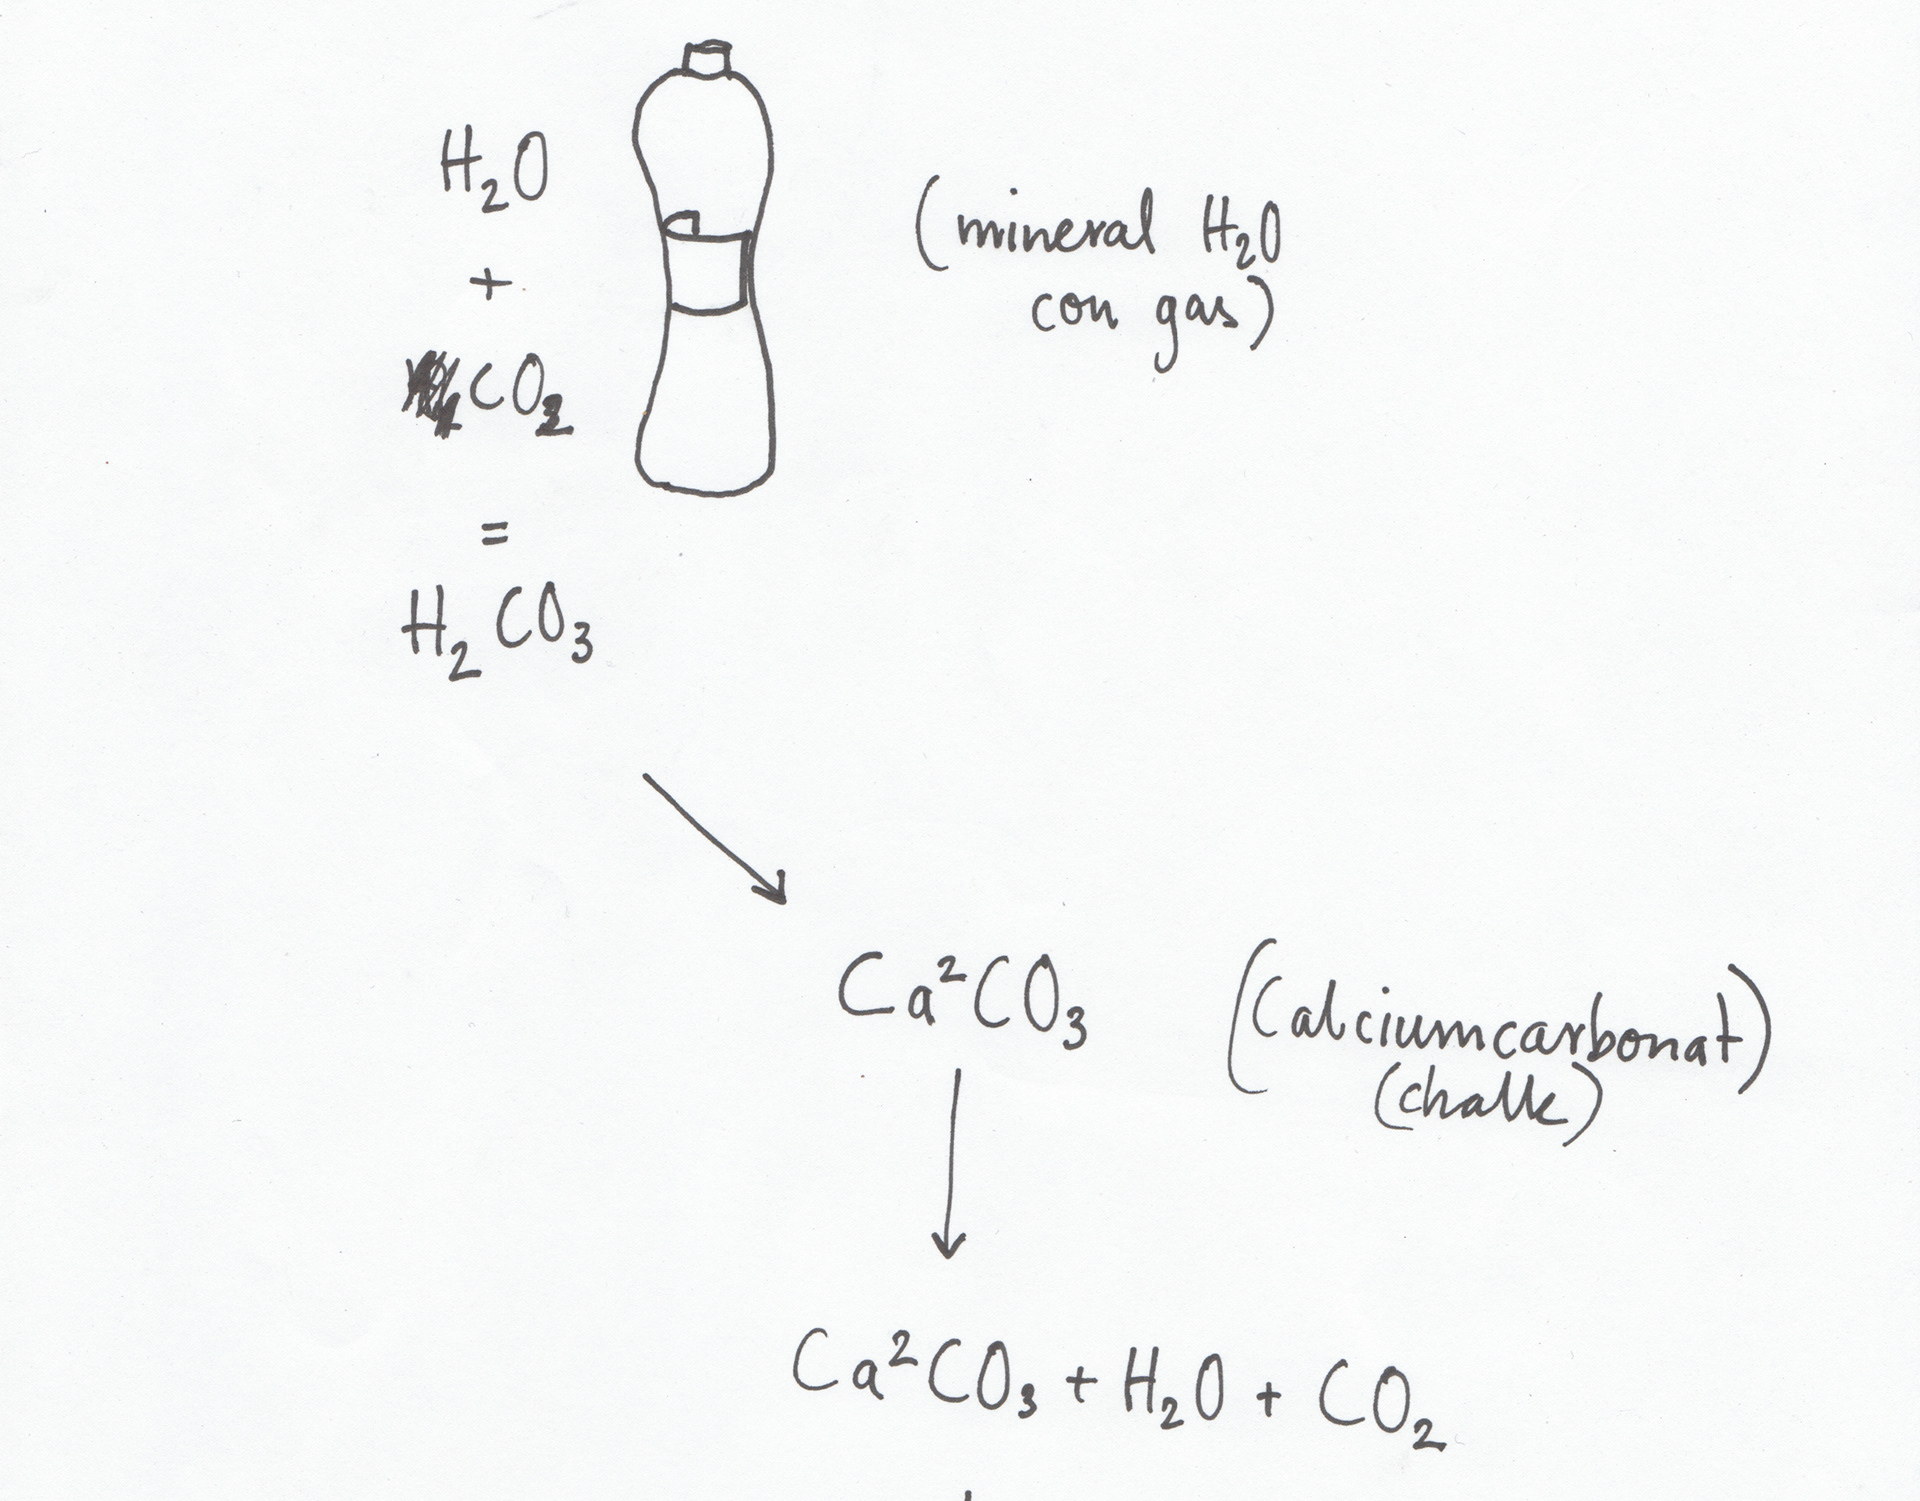 H₂O
+
CO₂
=
H₂CO₃
(mineral H₂O
con gas)
Ca²CO₃
(Calciumcarbonat)
(chalk)
Ca²CO₃ + H₂O + CO₂